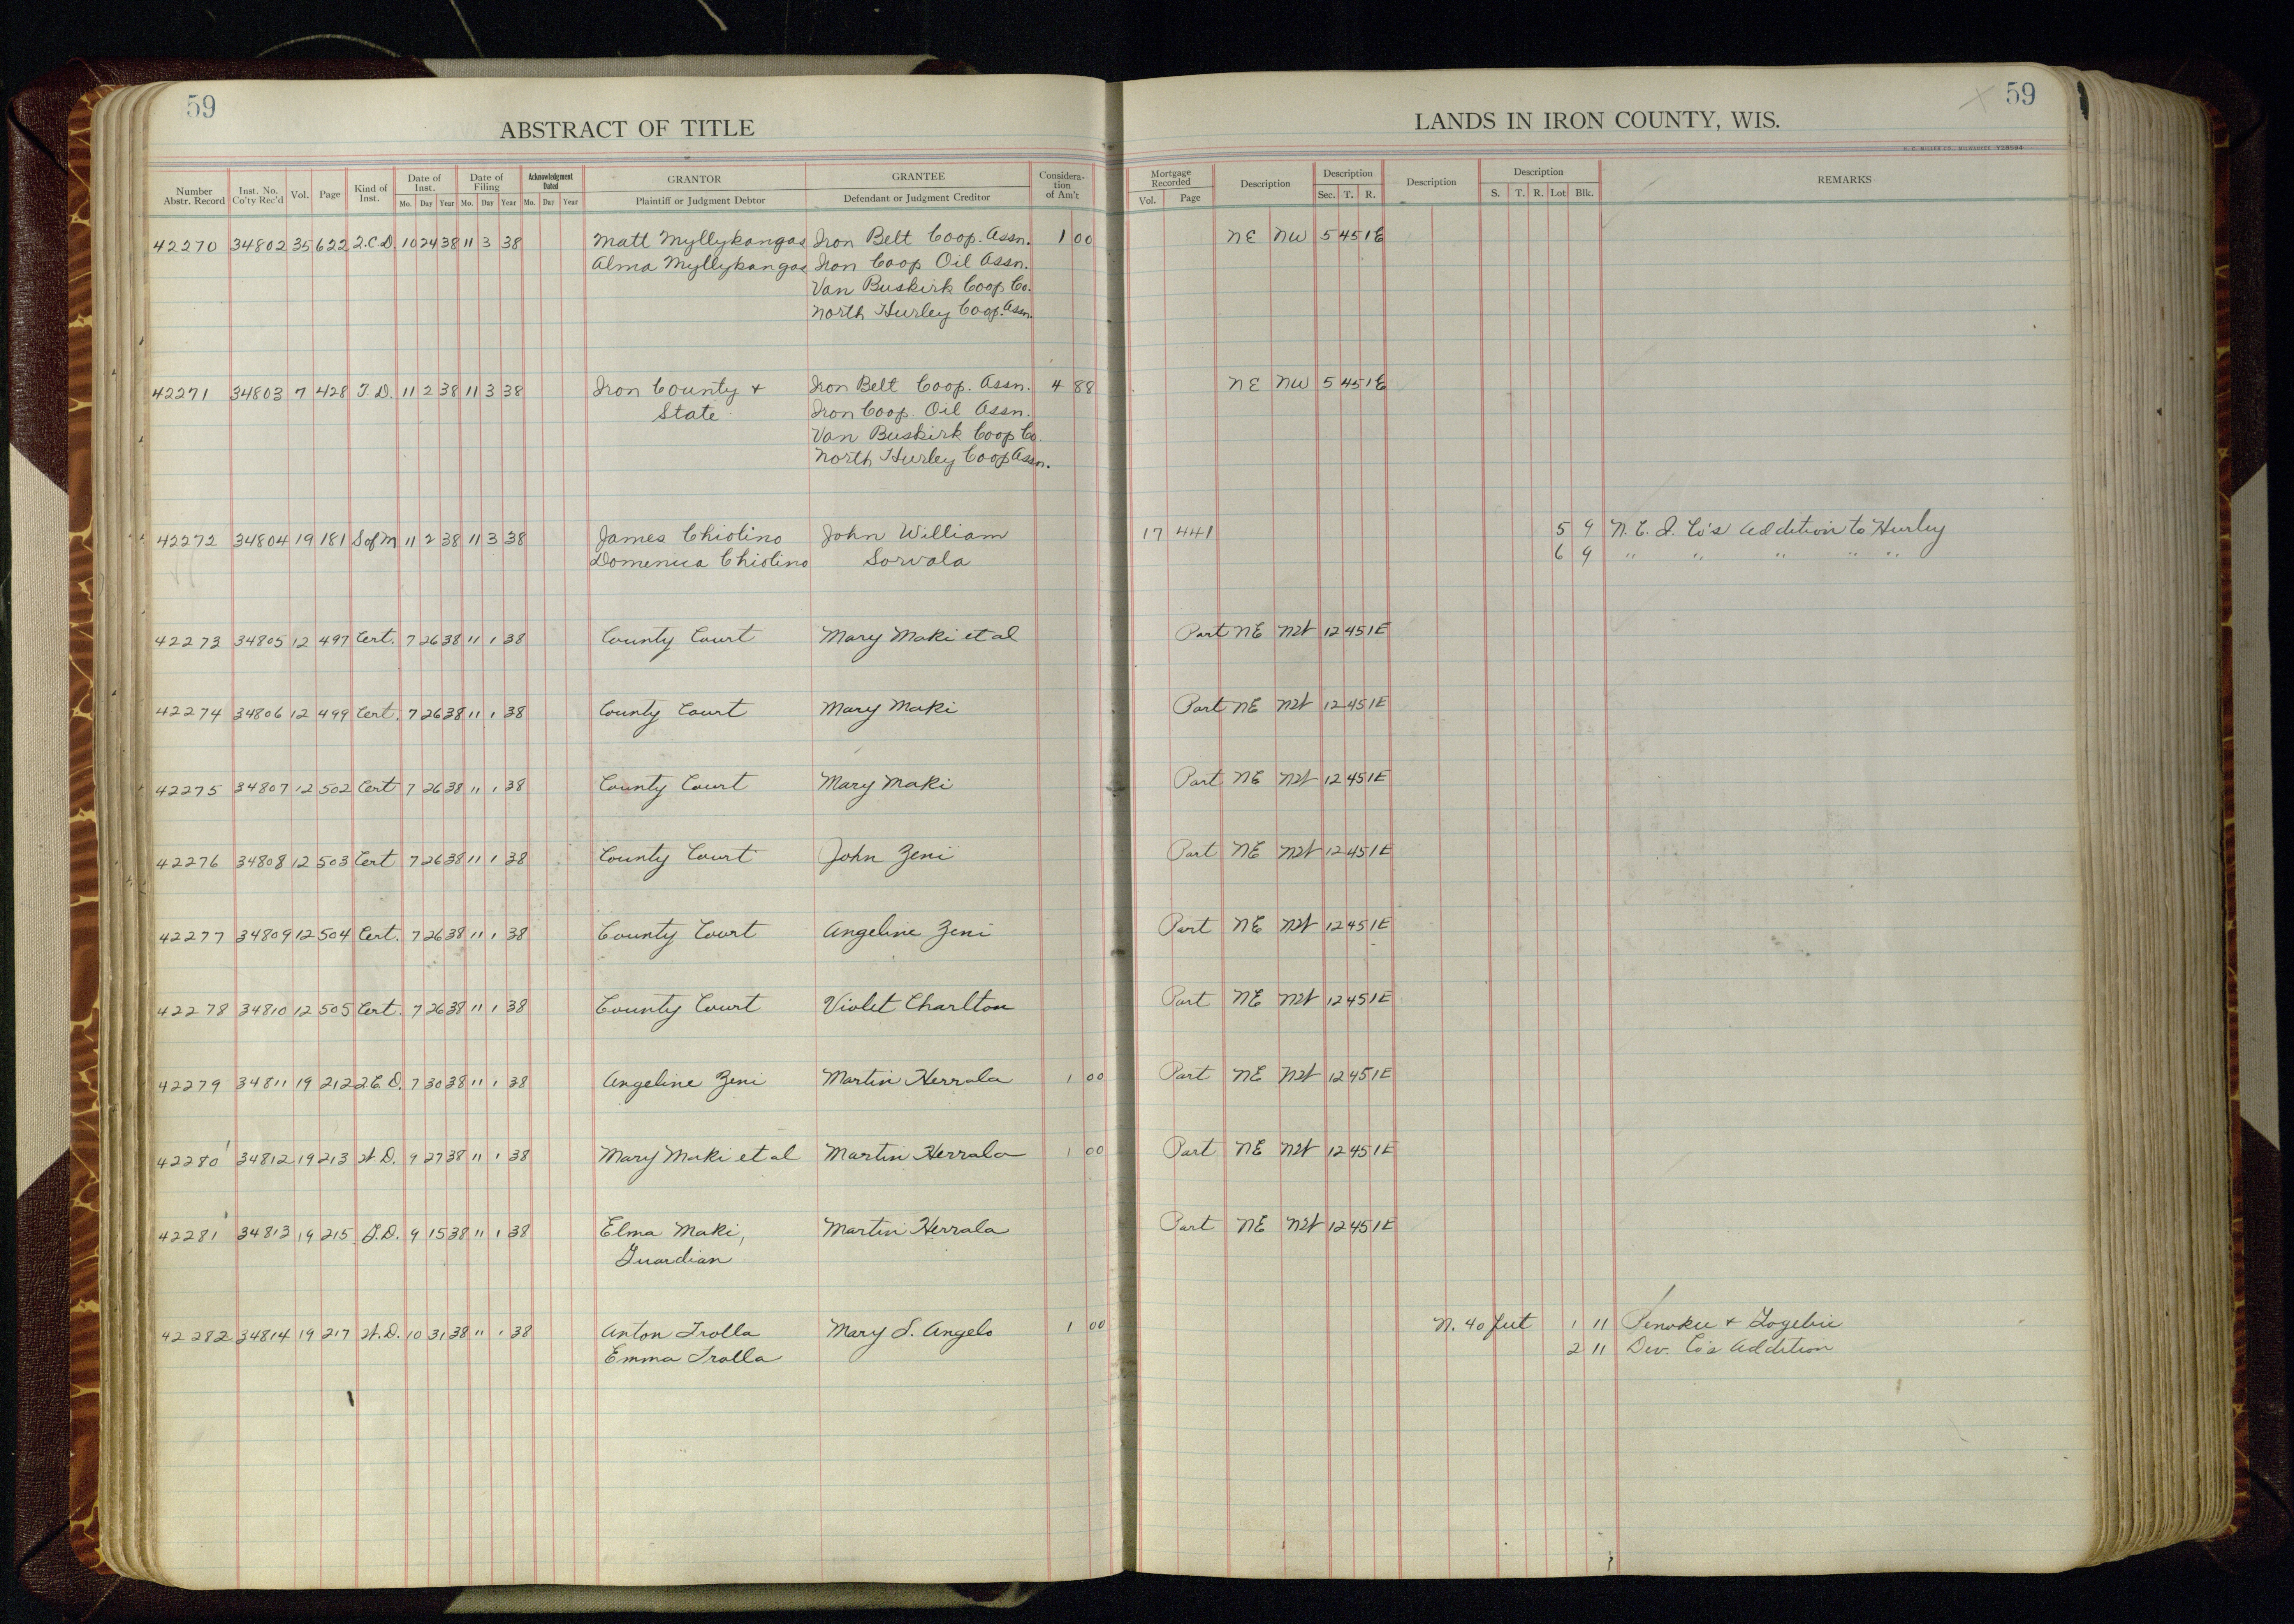 59
ABSTRACT OF TITLE
LANDS IN IRON COUNTY, WIS.
59
Number Abstr. Record Inst. No. Co'ty Rec'd Vol. Page Kind of Inst. Date of Inst. Mo. Day Year Date of Filing Mo. Day Year Acknowledgment Dated Mo. Day Year GRANTOR Plaintiff or Judgment Debtor GRANTEE Defendant or Judgment Creditor Considera-tion of Am't Mortgage Recorded Vol. Page Description Description Sec. T. R. Description Description S. T. R. Lot Blk. REMARKS
42270 34802 35 622 2.C.D. 10 24 38 11 3 38 Matt Myllykangas Iron Belt Coop. Assn. 1 00 NE NW 5 45 1E
Alma Myllykangas Iron Coop Oil Assn.
Van Buskirk Coop Co.
North Hurley Coop. Assn.
42271 34803 7 428 T.D. 11 2 38 11 3 38 Iron County + Iron Belt Coop. Assn. 4 88 NE NW 5 45 1E
State Iron Coop. Oil Assn.
Van Buskirk Coop Co.
North Hurley Coop Assn.
42272 34804 19 181 S of M 11 2 38 11 3 38 James Chiolino John William 17 441 5 9 N. C. I. Co's Addition to Hurley
Domenica Chiolino Sorvala 6 9 " " " " "
42273 34805 12 497 Cert. 7 26 38 11 1 38 County Court Mary Maki et al Part NE NW 12 45 1E
42274 34806 12 499 Cert. 7 26 38 11 1 38 County Court Mary Maki Part NE NW 12 45 1E
42275 34807 12 502 Cert 7 26 38 11 1 38 County Court Mary Maki Part NE NW 12 45 1E
42276 34808 12 503 Cert 7 26 38 11 1 38 County Court John Zeni Part NE NW 12 45 1E
42277 34809 12 504 Cert. 7 26 38 11 1 38 County Court Angeline Zeni Part NE NW 12 45 1E
42278 34810 12 505 Cert. 7 26 38 11 1 38 County Court Violet Charlton Part NE NW 12 45 1E
42279 34811 19 212 2.C.D. 7 30 38 11 1 38 Angeline Zeni Martin Herrala 1 00 Part NE NW 12 45 1E
42280 34812 19 213 W.D. 9 27 38 11 1 38 Mary Maki et al Martin Herrala 1 00 Part NE NW 12 45 1E
42281 34813 19 215 G.D. 9 15 38 11 1 38 Elma Maki, Martin Herrala Part NE NW 12 45 1E
Guardian
42282 34814 19 217 W.D. 10 31 38 11 1 38 Anton Trolla Mary S. Angelo 1 00 N. 40 feet 1 11 Penokee + Gogebic
Emma Trolla 2 11 Dev. Co's Addition